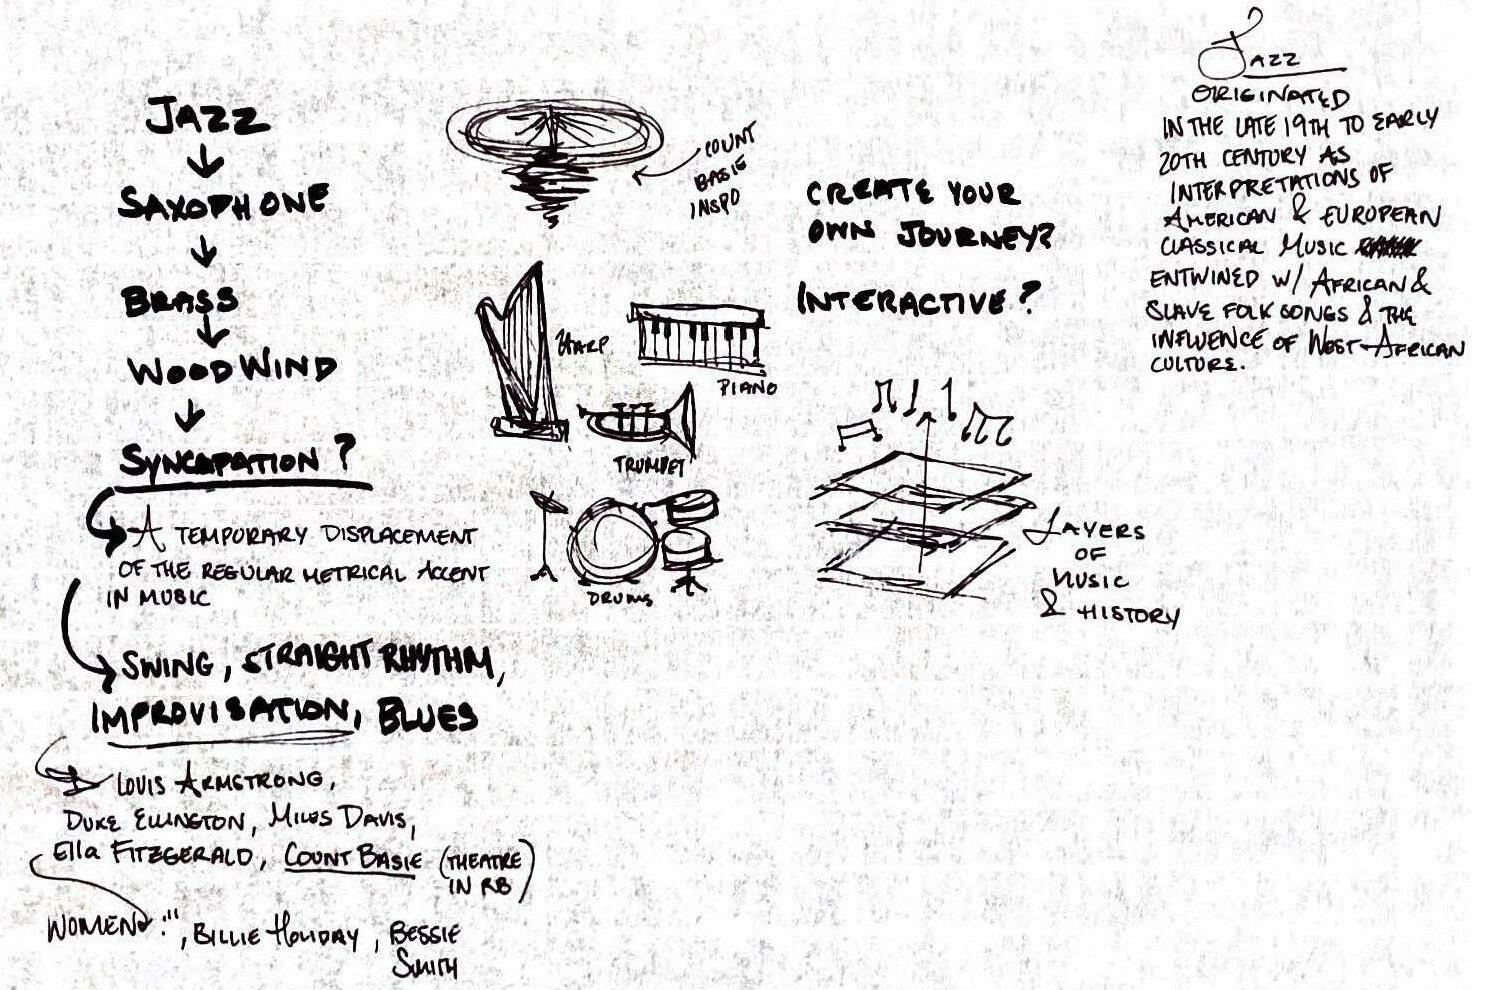 JAZZ
SAXOPHONE
BRASS
WOODWIND
SYNCAPATION?
A TEMPORARY DISPLACEMENT
OF THE REGULAR METRICAL ACCENT
IN MUSIC
SWING, STRAIGHT RHYTHM,
IMPROVISATION, BLUES
LOUIS ARMSTRONG,
DUKE ELLINGTON, MILES DAVIS,
Ella FITZGERALD, COUNT BASIE (THEATRE
IN RB)
WOMEN: ", BILLIE HOLIDAY, BESSIE
SMITH
COUNT
BASIE
INSPO
HARP
PIANO
TRUMPET
DRUMS
CREATE YOUR
OWN JOURNEY?
INTERACTIVE?
LAYERS
OF
MUSIC
& HISTORY
JAZZ
ORIGINATED
IN THE LATE 19TH TO EARLY
20TH CENTURY AS
INTERPRETATIONS OF
AMERICAN & EUROPEAN
CLASSICAL MUSIC
ENTWINED W/ AFRICAN &
SLAVE FOLK SONGS & THE
INFLUENCE OF WEST-AFRICAN
CULTURE.